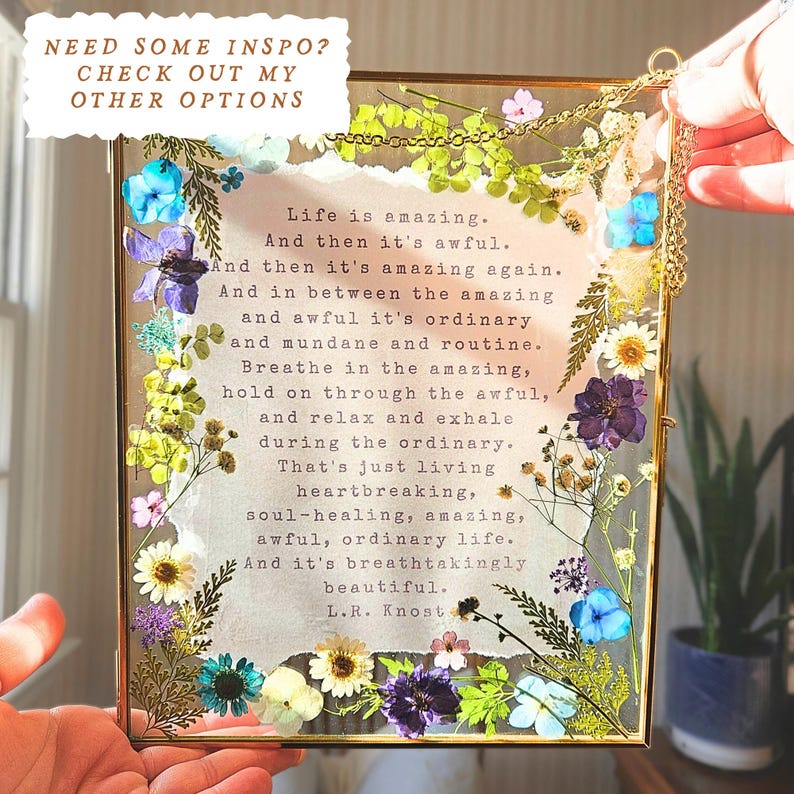 NEED SOME INSPO?
CHECK OUT MY
OTHER OPTIONS
Life is amazing.
And then it's awful.
And then it's amazing again.
And in between the amazing
and awful it's ordinary
and mundane and routine.
Breathe in the amazing,
hold on through the awful,
and relax and exhale
during the ordinary.
That's just living
heartbreaking,
soul-healing, amazing,
awful, ordinary life.
And it's breathtakingly
beautiful.
L.R. Knost